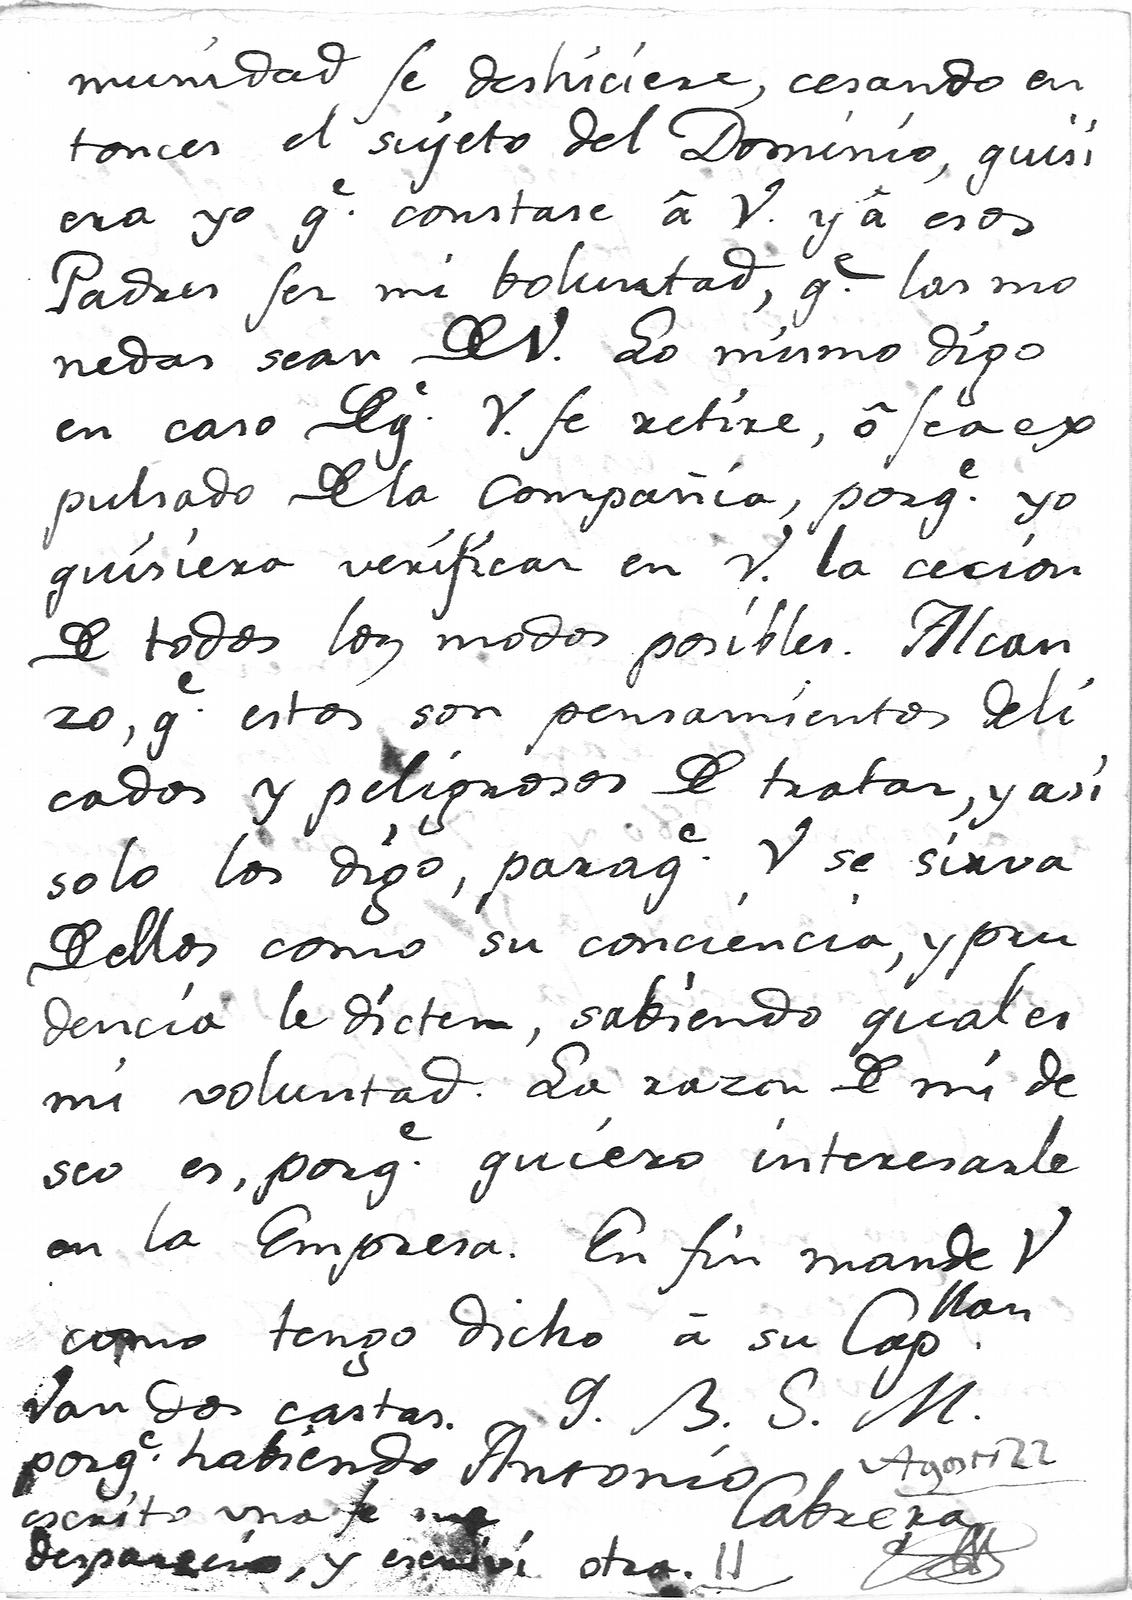 munidad se deshiciere, cesando en
tonces el sujeto del Dominio, quisi
era yo q.^e constase â V. y â esos
Padres ser mi boluntad, q.^e las mo
nedas sean De V. Lo mismo digo
en caso De q.^e V. se retire, ô sea ex
pulsado De la Compañia, porq.^e yo
quisiera verificar en V. la cecion
De todos los modos posibles. Alcan
zo, q.^e estos son pensamientos deli
cados y peligrosos De tratar, y asi
solo los digo, paraq.^e V se sirva
De ellos como su conciencia, y pru
dencia le dicten, sabiendo qual es
mi voluntad. La razon De mi de
seo es, porq.^e quiero interesarle
en la Empresa. En fin mande V
como tengo dicho â su Cap.^llan
Van dos cartas. q. B. S. M.
porq.^e habiendo Antonio
Cabrera
escrito una se me
desparecio, y escrivi otra.